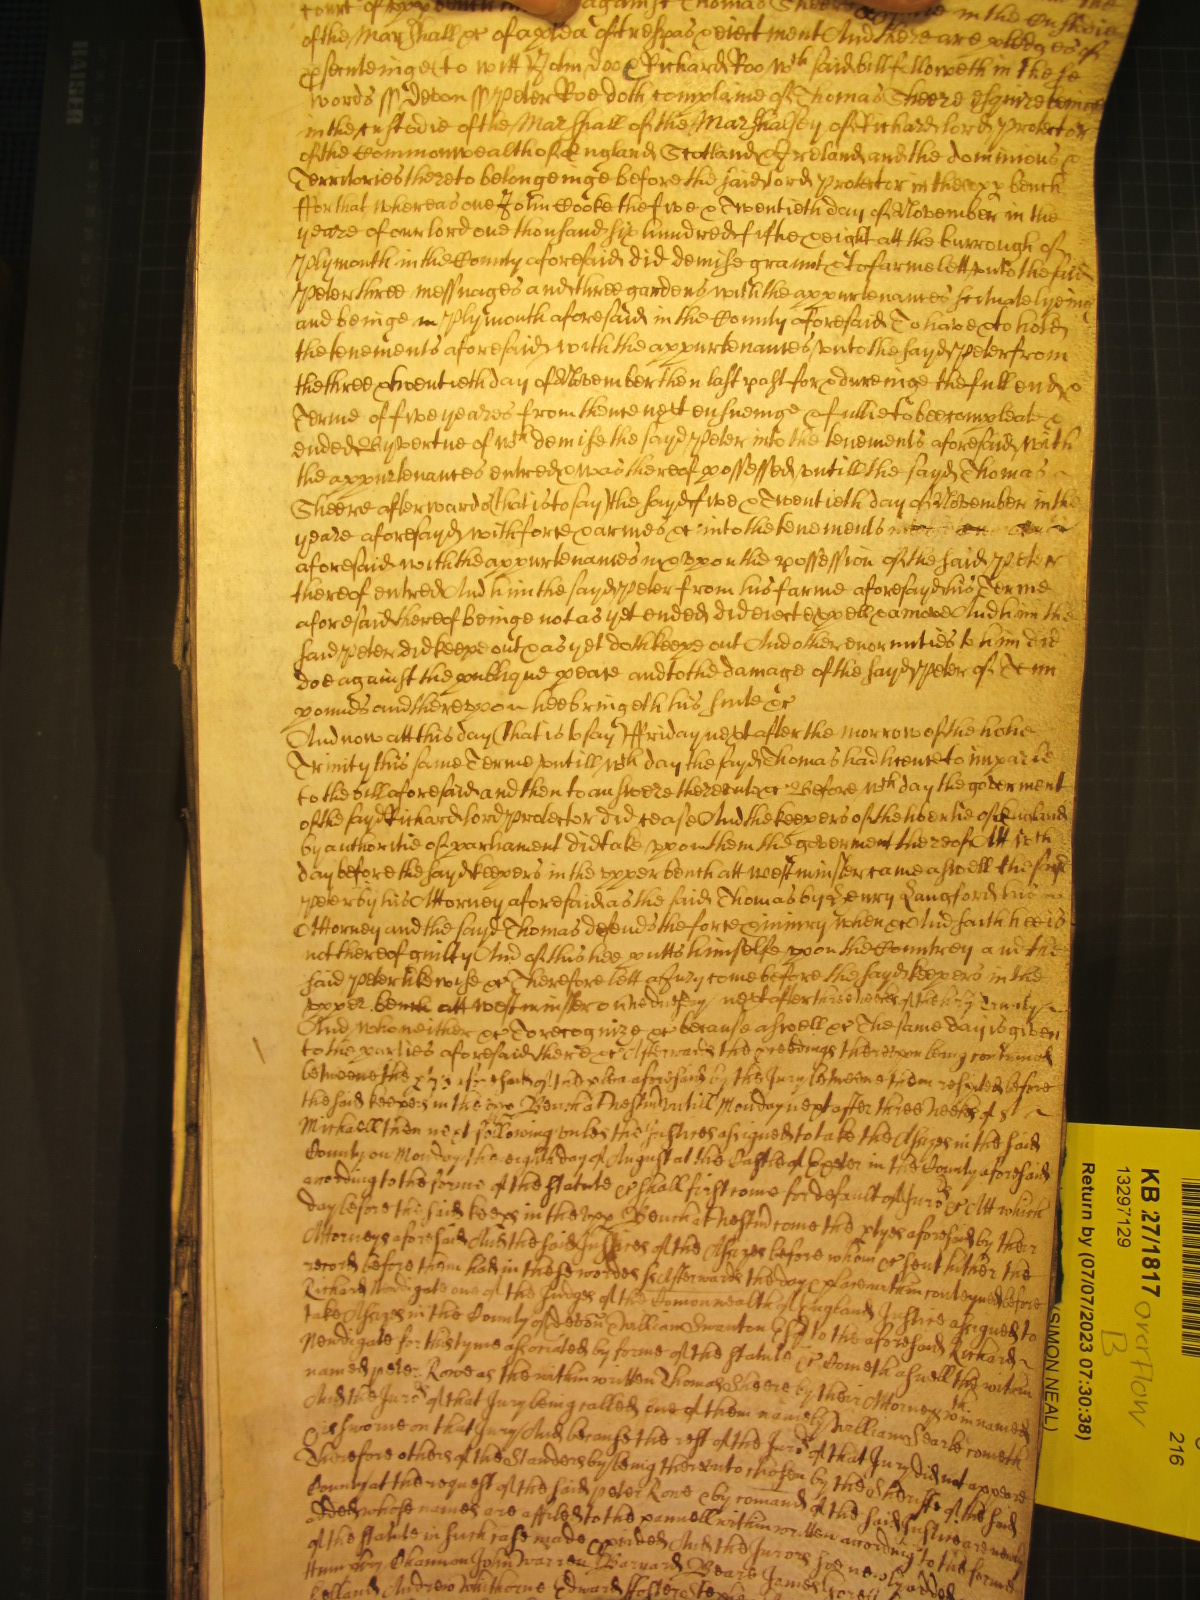 Court of against Thomas Sheere Esquire in the Custodie
of the Marshall &c of a plea of trespas & eiectment And there are pledges of
psecuteinge to witt John Doo & Richard Roo wch said bill followeth in these
words ss Devon ss Peter Roe doth complaine of Thomas Sheere Esquire beinge
in the custodie of the Marshall of the Marshalsey of Richard lord Protector
of the Commonwealth of England Scotland & Ireland and the dominions &
Territories thereto belongeinge before the said lord Protector in the upp bench
ffor that whereas one John Cooke the five & Twentieth day of November in the
yeare of our lord one thousand six hundred fiftie & eight att the burrough of
Plymouth in the County aforesaid did demise graunt & to farme lett unto the said
Peter three messuages and three gardens with the appurtenances scituate lyeing
and beinge in Plymouth aforesaid in the County aforesaid To have & to hold
the tenements aforesaid with the appurtenances unto the sayd Peter from
the three & twentieth day of November then last past for & dureinge the full end &
Terme of five yeares from thence next ensueinge & fullie to bee compleate &
ended By vertue of wch demise the sayd Peter into the tenements aforesaid with
the appurtenances entred & was thereof possessed untill the sayd Thomas
Sheere afterwards (that is to say) the sayd five & Twentieth day of November in the
yeare aforesayd with force & armes &c into the tenements
aforesaid with the appurtenances in & uppon the possession of the said Peter
thereof entred And him the sayd Peter from his farme aforesayd his Terme
aforesaid thereof beinge not as yet ended did eiecte expell & amove And him the
said Peter did keepe out & as yet doth keepe out And other enormities to him did
doe against the publique peace and to the damage of the sayd Peter of Tenn
pounds and thereupon hee bringeth his suite &c
And now att this day (that is to say) ffriday next after the morrow of the holie
Trinity this same Terme untill wch day the sayd Thomas had licence to imparle
to the bill aforesaid and then to answere thereunto &c Before wch day the goverment
of the sayd Richard lord Protector did cease And the keepers of the libertie of England
by authoritie of parliament did take upon them the goverment thereof Att wch
day before the sayd keepers in the upper bench att westminster came aswell the said
Peter by his Attorney aforesaid as the said Thomas by Henry Langford his
Attorney and the sayd Thomas defends the force & iniury when &c And saith hee is
not thereof guilty And of this hee putts himselfe upon the Countrey and the
said Peter likewise &c Therefore lett a Jury come before the sayd keepers in the
upper bench att westminster on wednesday next after three weekes of the holy Trinity
And who neither &c To recognize &c because aswell &c The same day is given
to the parties aforesaid there &c Afterwards the proceedings thereupon being continued
betweene the of the plea aforesaid by the Jury betweene them respited before
the said keepers in the upp Bench at Westmr untill Monday next after three weekes of St
Michaell then next following unles the Justices assigned to take the Assizes in the said
County on Monday the eighth day of August at the Castle of Exeter in the County aforesaid
according to the forme of the statute &c shall first come for default of Jurors &c Att which
day before the said keeps in the upp Bench at Westmr come the ptyes aforesaid by their
Attorneys aforesaid And the said Justices of the Assizes before whom &c sent hither the
record before them had in these wordes ss Afterwards the day & place within conteyned before
Richard Newdigate one of the Judges of the Comonwealth of England Justice assigned to
take Assizes in the County of Devon William Swanton Esq to the aforesaid Richard
Newdigate for this tyme associated by forme of the statute &c Cometh aswell the within
named Peter Rowe as the within written Thomas Sheere by their Attorneys within named
And the Jurors of that Jury being called one of them namely William Searle cometh
& is sworne on that Jury And because the rest of the Jurors of that Jury did not appeare
Therefore others of the standers by being thereunto chosen by the Sheriffe of the said
County at the request of the said Peter Rowe & by comand of the said Justice are newly
added whose names are affiled to the pannell within written according to the forme
of the statute in such case made & pvided And the Jurors soe newly added
Channon John Warren Barnard Beare James
Andrew Whithorne Edward ffoster
KB 27/1817
13297129
Return by (07/07/2023 07:30:38)
(SIMON NEAL)
216
Overflow
B
KAISER